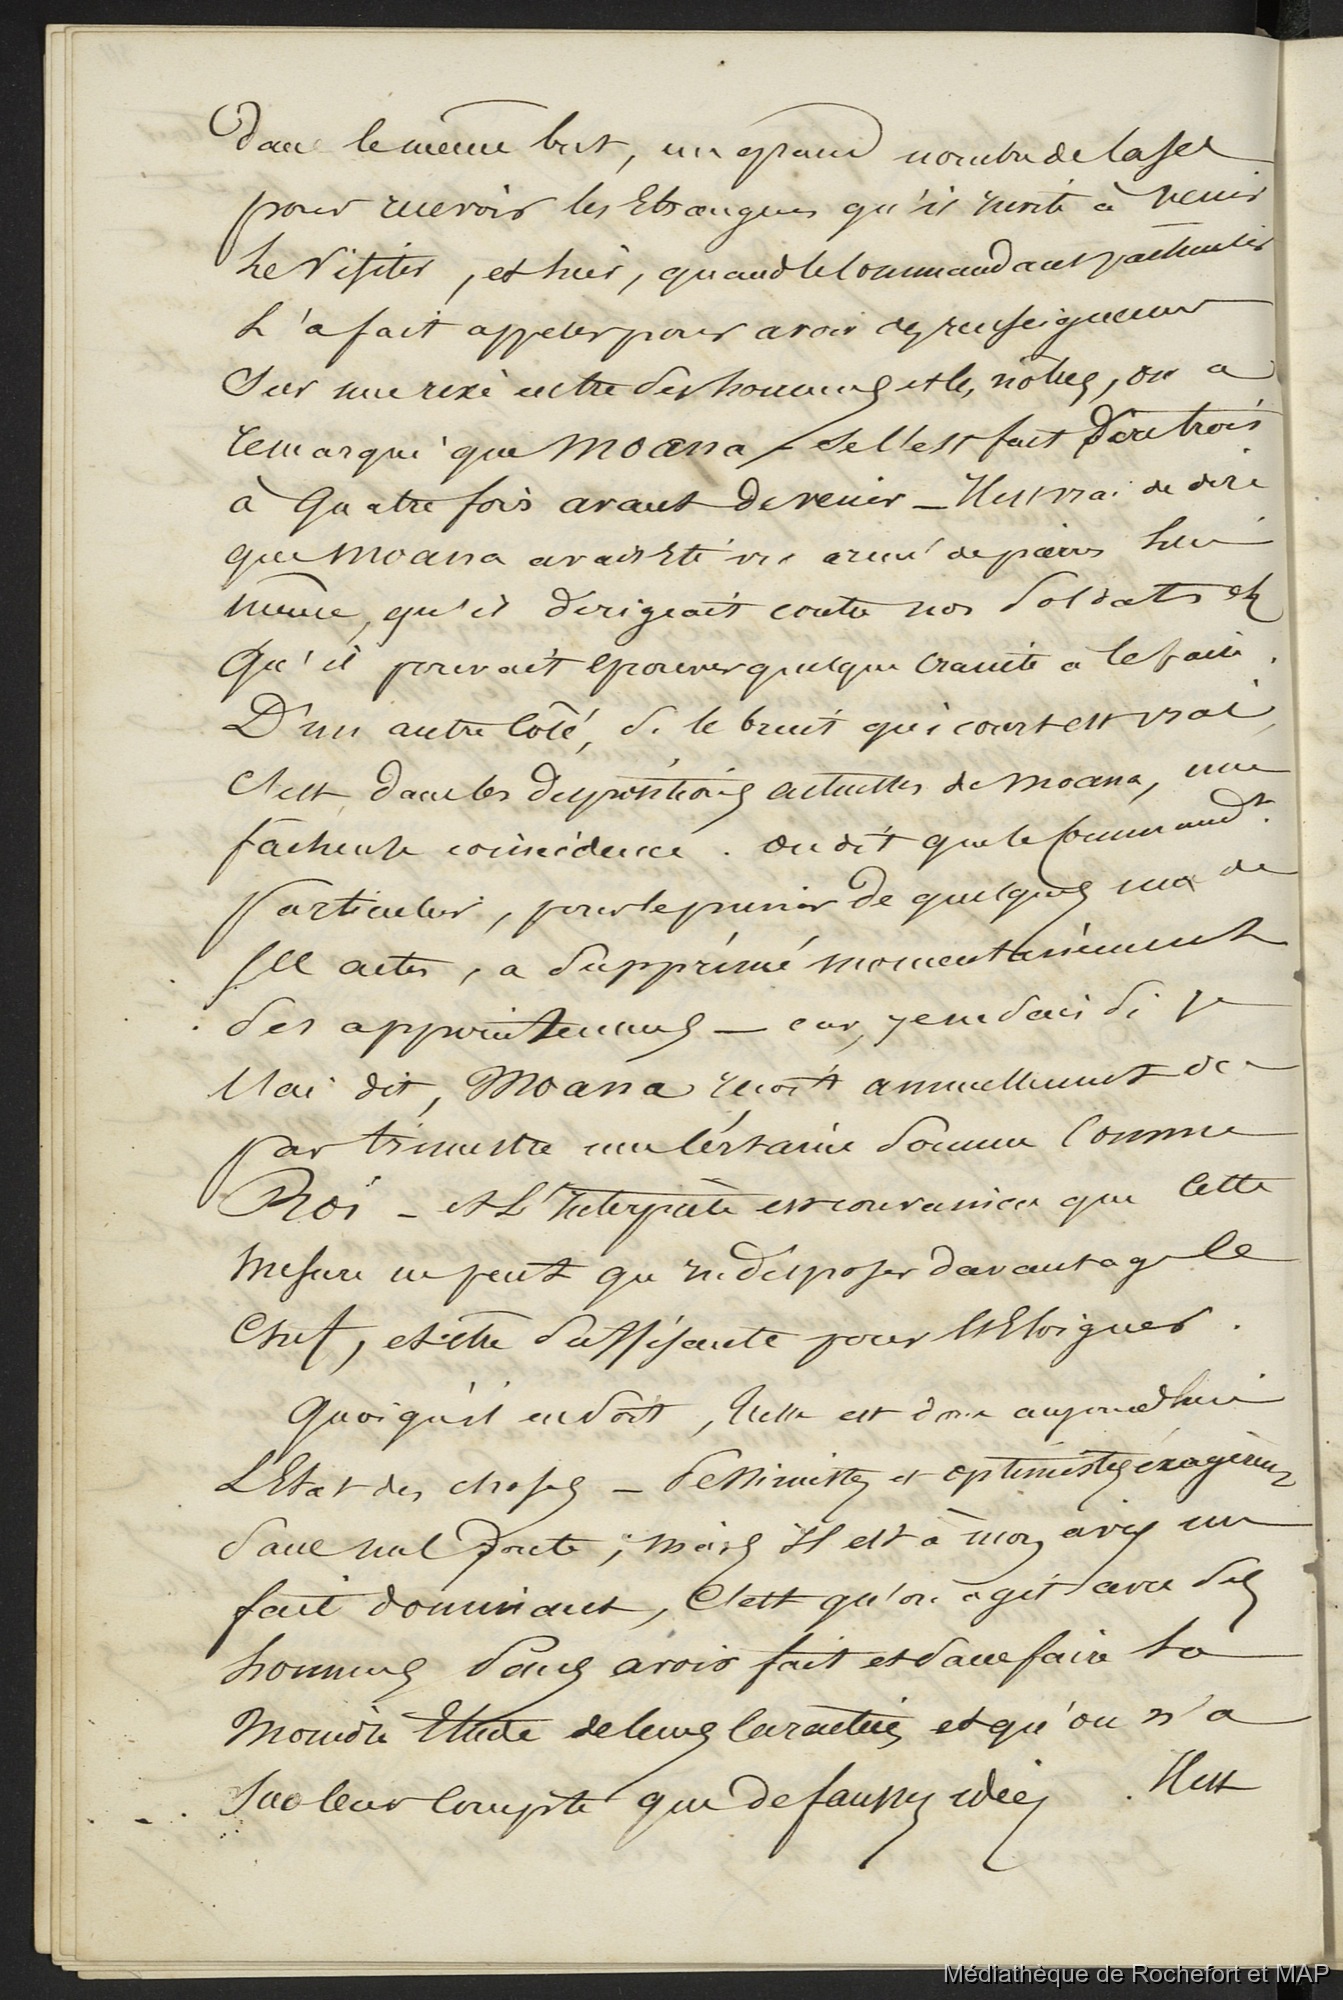 dans le même but, un grand nombre de cases
pour recevoir les Etrangers qu'il invite à venir
le visiter, et hier, quand le Commandant particulier
l'a fait appeler pour avoir des renseignemens
sur une rixe entre ses hommes et les nôtres, on a
remarqué que Moana se l'est fait dire trois
à quatre fois avant de venir _ Il est vrai de dire
que Moana avait été vu armé de pierres lui
même, qu'il dirigeait contre nos soldats et
qu'il pouvait éprouver quelque crainte à le faire.
D'un autre Côté, si le bruit qui court est vrai,
C'est, dans les dispositions actuelles de Moana, une
fâcheuse coïncidence. On dit que le Command.t
particulier, pour le punir de quelques uns de
ses actes, a supprimé momentanément
ses appointemens _ car, je ne sais si je
l'ai dit, Moana reçoit annuellement
par trimestre une Certaine somme Comme
Roi _ et l'Interprète est convaincu que Cette
Mesure ne peut qu'indisposer davantage le
Chef, et être suffisante pour l'Eloigner.
Quoiqu'il en soit, telle est donc aujourd'hui
L'Etat des choses _ Pessimistes et optimistes exagèrent
sans nul doute; mais il est à mon avis un
fait dominant, C'est qu'on agit avec des
hommes sans avoir fait et sans faire la
Moindre Etude de leurs Caractères et qu'on n'a
sur leur Compte que de fausses idées. Il est
Médiathèque de Rochefort et MAP